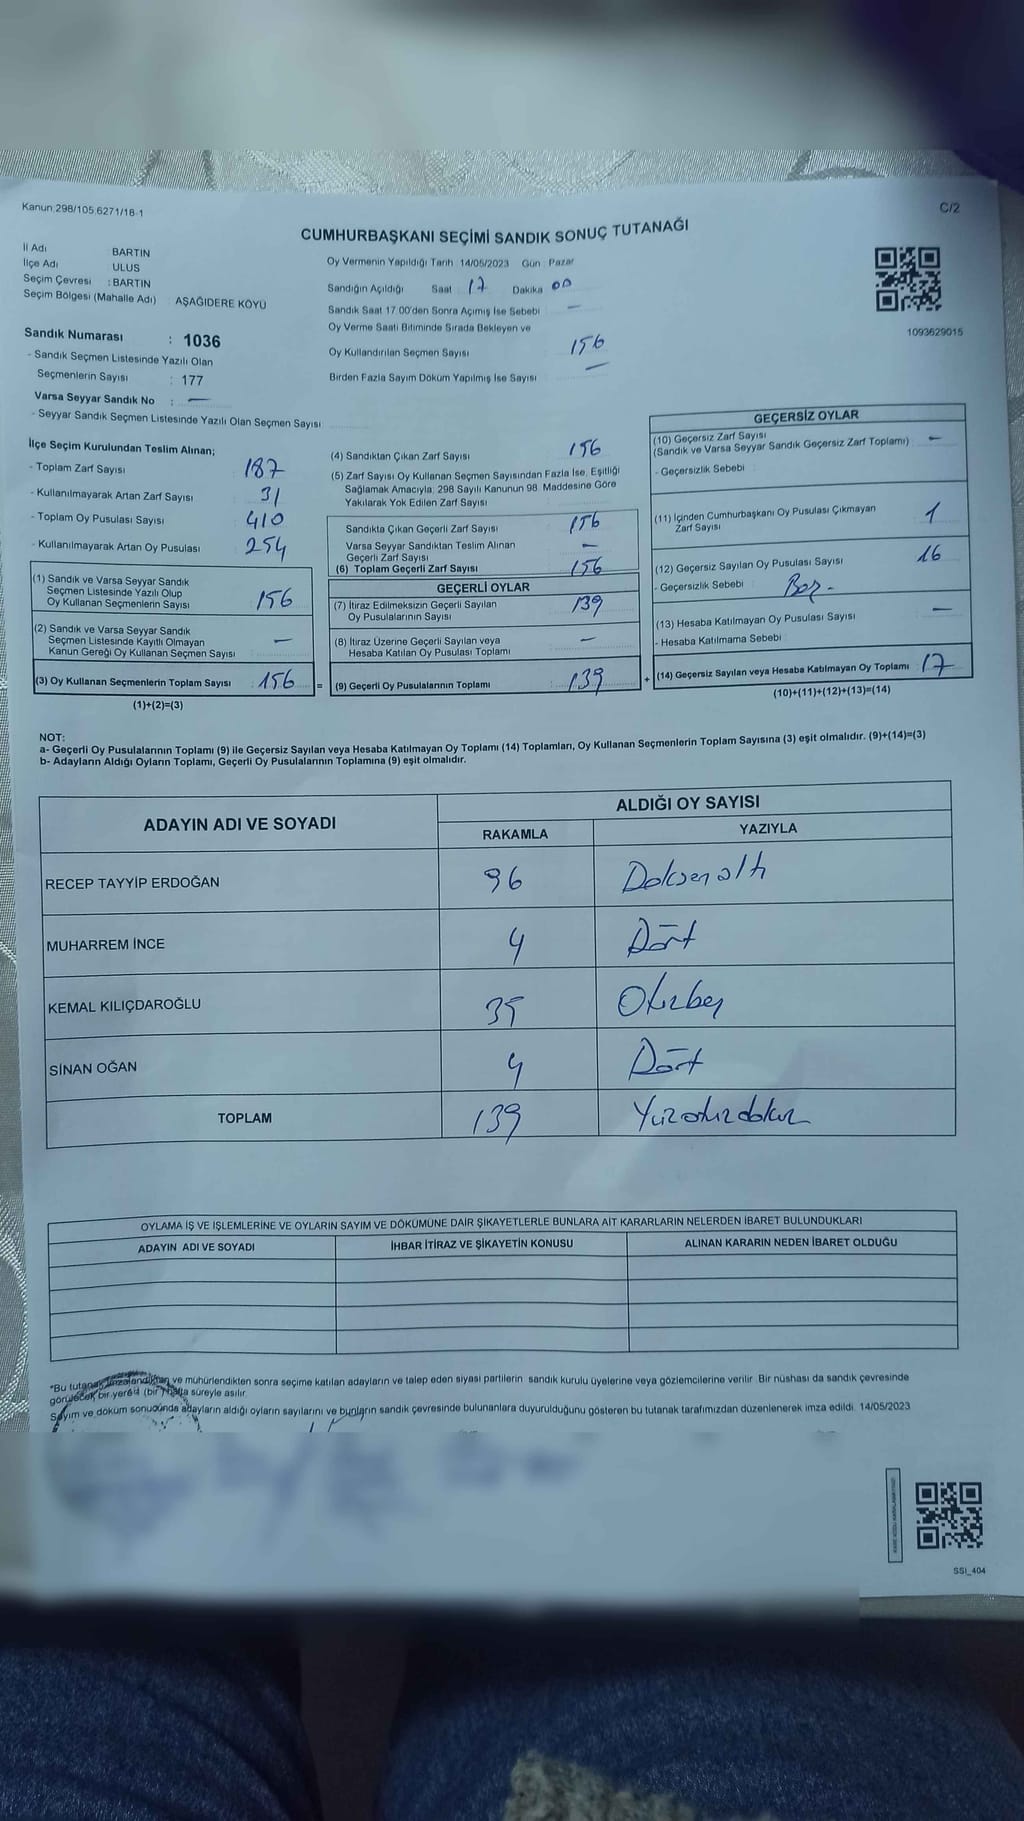 Kanun:298/105 6271/18-1
C/2
CUMHURBAŞKANI SEÇİMİ SANDIK SONUÇ TUTANAĞI
İl Adı : BARTIN
İlçe Adı : ULUS
Seçim Çevresi : BARTIN
Seçim Bölgesi (Mahalle Adı) : AŞAĞIDERE KÖYÜ
Sandık Numarası : 1036
- Sandık Seçmen Listesinde Yazılı Olan
Seçmenlerin Sayısı : 177
Varsa Seyyar Sandık No : —
- Seyyar Sandık Seçmen Listesinde Yazılı Olan Seçmen Sayısı
Oy Vermenin Yapıldığı Tarih : 14/05/2023 Gün : Pazar
Sandığın Açıldığı Saat : 17 Dakika 00
Sandık Saat 17:00'den Sonra Açılmış İse Sebebi —
Oy Verme Saati Bitiminde Sırada Bekleyen ve
Oy Kullandırılan Seçmen Sayısı 156
Birden Fazla Sayım Döküm Yapılmış İse Sayısı —
1093629015
İlçe Seçim Kurulundan Teslim Alınan;
- Toplam Zarf Sayısı 187
- Kullanılmayarak Artan Zarf Sayısı 31
- Toplam Oy Pusulası Sayısı 410
- Kullanılmayarak Artan Oy Pusulası 254
(1) Sandık ve Varsa Seyyar Sandık
Seçmen Listesinde Yazılı Olup
Oy Kullanan Seçmenlerin Sayısı 156
(2) Sandık ve Varsa Seyyar Sandık
Seçmen Listesinde Kayıtlı Olmayan
Kanun Gereği Oy Kullanan Seçmen Sayısı —
(3) Oy Kullanan Seçmenlerin Toplam Sayısı : 156 =
(1)+(2)=(3)
(4) Sandıktan Çıkan Zarf Sayısı 156
(5) Zarf Sayısı Oy Kullanan Seçmen Sayısından Fazla İse, Eşitliği
Sağlamak Amacıyla; 298 Sayılı Kanunun 98. Maddesine Göre
Yakılarak Yok Edilen Zarf Sayısı
Sandıkta Çıkan Geçerli Zarf Sayısı 156
Varsa Seyyar Sandıktan Teslim Alınan
Geçerli Zarf Sayısı —
(6) Toplam Geçerli Zarf Sayısı 156
GEÇERLİ OYLAR
(7) İtiraz Edilmeksizin Geçerli Sayılan
Oy Pusulalarının Sayısı 139
(8) İtiraz Üzerine Geçerli Sayılan veya
Hesaba Katılan Oy Pusulası Toplamı —
(9) Geçerli Oy Pusulalarının Toplamı : 139 +
GEÇERSİZ OYLAR
(10) Geçersiz Zarf Sayısı
(Sandık ve Varsa Seyyar Sandık Geçersiz Zarf Toplamı) —
- Geçersizlik Sebebi :
(11) İçinden Cumhurbaşkanı Oy Pusulası Çıkmayan
Zarf Sayısı 1
(12) Geçersiz Sayılan Oy Pusulası Sayısı 16
- Geçersizlik Sebebi : Boş -
(13) Hesaba Katılmayan Oy Pusulası Sayısı —
- Hesaba Katılmama Sebebi :
(14) Geçersiz Sayılan veya Hesaba Katılmayan Oy Toplamı : 17
(10)+(11)+(12)+(13)=(14)
NOT:
a- Geçerli Oy Pusulalarının Toplamı (9) ile Geçersiz Sayılan veya Hesaba Katılmayan Oy Toplamı (14) Toplamları, Oy Kullanan Seçmenlerin Toplam Sayısına (3) eşit olmalıdır. (9)+(14)=(3)
b- Adayların Aldığı Oyların Toplamı, Geçerli Oy Pusulalarının Toplamına (9) eşit olmalıdır.
ADAYIN ADI VE SOYADI
ALDIĞI OY SAYISI
RAKAMLA YAZIYLA
RECEP TAYYİP ERDOĞAN 96 Doksanaltı
MUHARREM İNCE 4 Dört
KEMAL KILIÇDAROĞLU 35 Otuzbeş
SİNAN OĞAN 4 Dört
TOPLAM 139 Yüzotuzdokuz
OYLAMA İŞ VE İŞLEMLERİNE VE OYLARIN SAYIM VE DÖKÜMÜNE DAİR ŞİKAYETLERLE BUNLARA AİT KARARLARIN NELERDEN İBARET BULUNDUKLARI
ADAYIN ADI VE SOYADI İHBAR İTİRAZ VE ŞİKAYETİN KONUSU ALINAN KARARIN NEDEN İBARET OLDUĞU
*Bu tutanak imzalandıktan ve mühürlendikten sonra seçime katılan adayların ve talep eden siyasi partilerin sandık kurulu üyelerine veya gözlemcilerine verilir. Bir nüshası da sandık çevresinde
görülecek bir yere 1 (bir) hafta süreyle asılır.
Sayım ve döküm sonucunda adayların aldığı oyların sayılarını ve bunların sandık çevresinde bulunanlara duyurulduğunu gösteren bu tutanak tarafımızdan düzenlenerek imza edildi. 14/05/2023
SSI_404